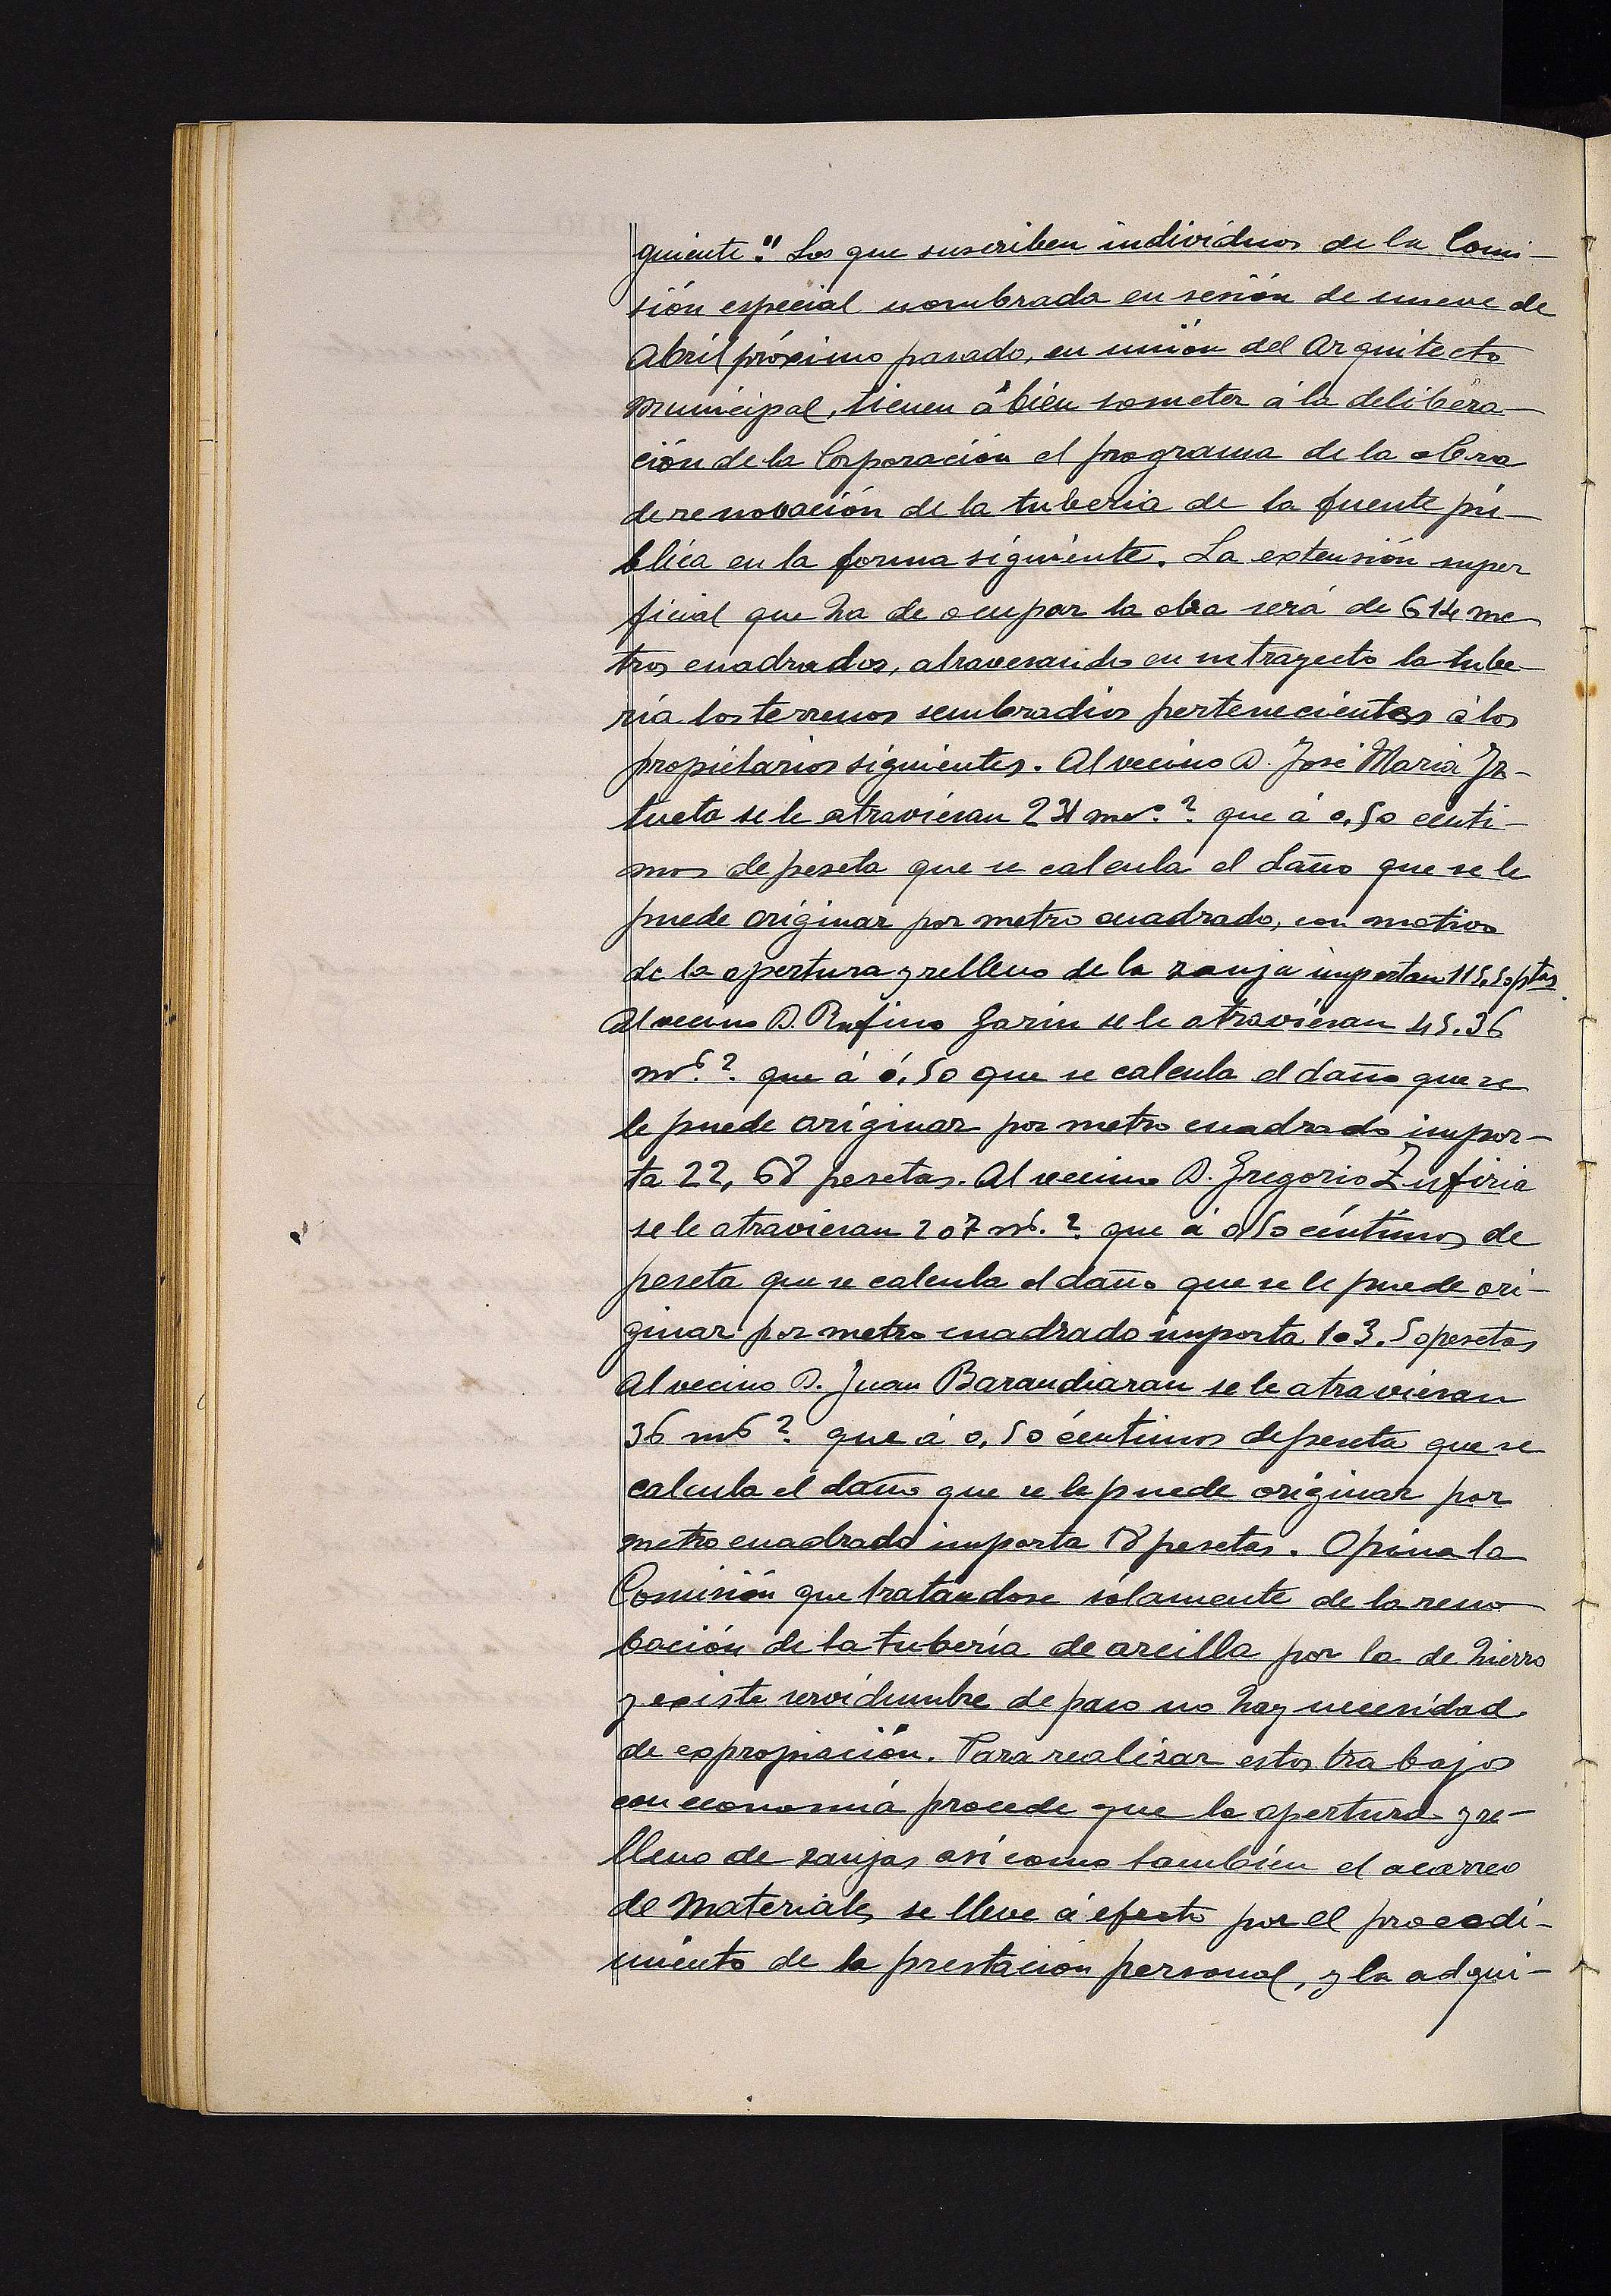 guiente." Los que suscriben individuos de la Comi-
sión especial nombrada en sesión de nueve de
Abril próximo pasado, en unión del Arquitecto
Municipal, tienen á bien someter á la delibera-
ción de la Corporación el programa de la obra
de renobación de la tuberia de la fuente pú-
blica en la forma siguiente. La extensión super
ficial que ha de ocupar la obra será de 614 me
tros cuadrados, atravesando en su trayecto la tube-
ria los terrenos sembradios pertenecientes á los
propietarios siguientes. Al vecino D. José Maria Iz-
tueta se le atraviesan 231 ms. 2 que á 0,50 centi-
mos de peseta que se calcula el daño que se le
puede originar por metro cuadrado, con motivo
de la apertura y relleno de la zanja importan 115,50 ptas.
Al vecino D. Rufino Garin se le atraviesan 45.36
ms. 2. que á 0,50 que se calcula el daño que se
le puede originar por metro cuadrado impor-
ta 22,68 pesetas. Al vecino D. Gregorio Zufiria
se le atraviesan 207 ms. 2 que á 0,50 céntimos de
peseta que se calcula el daño que se le puede ori-
ginar por metro cuadrado importa 103.50 pesetas
Al vecino D. Juan Barandiaran se le atraviesan
36 ms 2. que á 0,50 céntimos de peseta que se
calcula el daño que se le puede originar por
metro cuadrado importa 18 pesetas. Opina la
Comisión que tratándose sólamente de la reno
bación de la tubería de arcilla por la de hierro
y existe servidumbre de paso no hay necesidad
de expropiación. Para realizar estos trabajos
con economía procede que la apertura y re-
lleno de zanjas así como también el acarreo
de materiales se lleve á efecto por el procedi-
miento de la prestación personal, y la adqui-